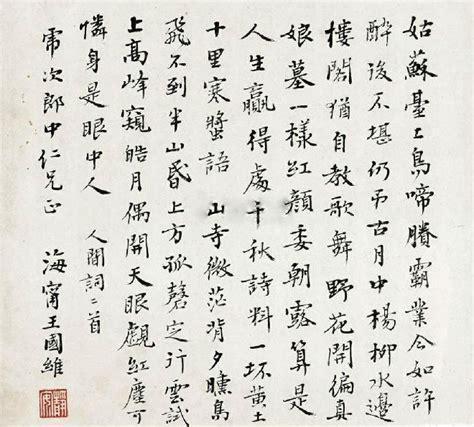 姑蘇臺上烏啼賸霸業今如許
醉後不堪仍弔古月中楊柳水邊
樓閣猶自教歌舞野花開徧真
娘墓一樣紅顏委朝露算是
人生贏得處千秋詩料一坏黃土
十里寒螿語 山寺微茫背夕曛鳥
飛不到半山昏上方孤磬定行雲試
上高峰窺皓月偶開天眼覷紅塵可
憐身是眼中人 人間詞二首
次郎中仁兄正
海甯王國維
靜安